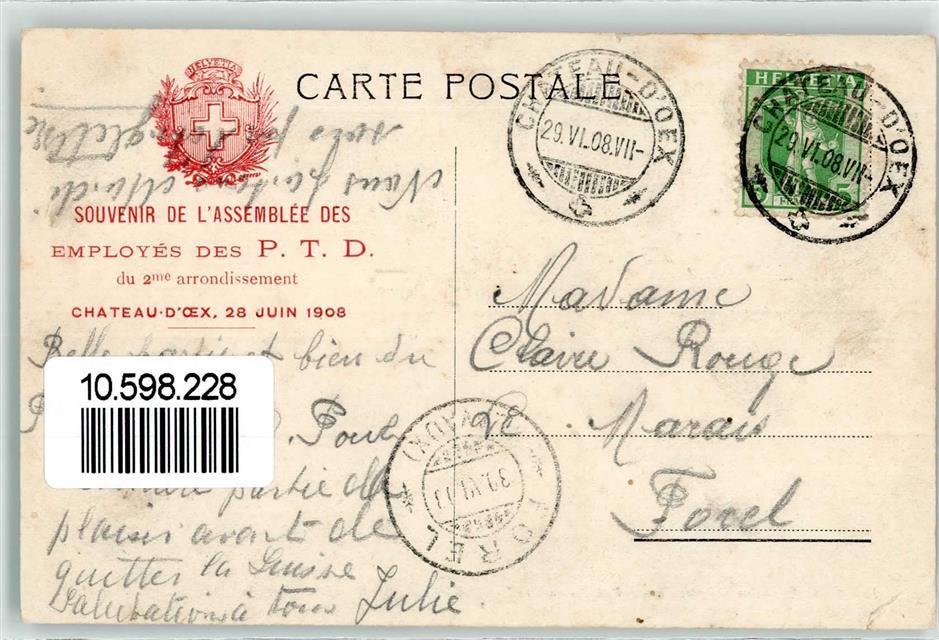 HELVETIA
CARTE POSTALE
SOUVENIR DE L'ASSEMBLÉE DES
EMPLOYÉS DES P. T. D.
du 2me arrondissement
CHATEAU-D'ŒX, 28 JUIN 1908
Belle partie et bien du
10.598.228
partie de
plaisir avant de
quitter la Suisse
Salutations à tous Julie.
Nous partons
CHATEAU-D'OEX
29.VI.08.VII-
HELVETIA
5
CHATEAU-D'OEX
29.VI.08.VII-
Madame
Claire Rouge
Le Marais
Forel
FOREL